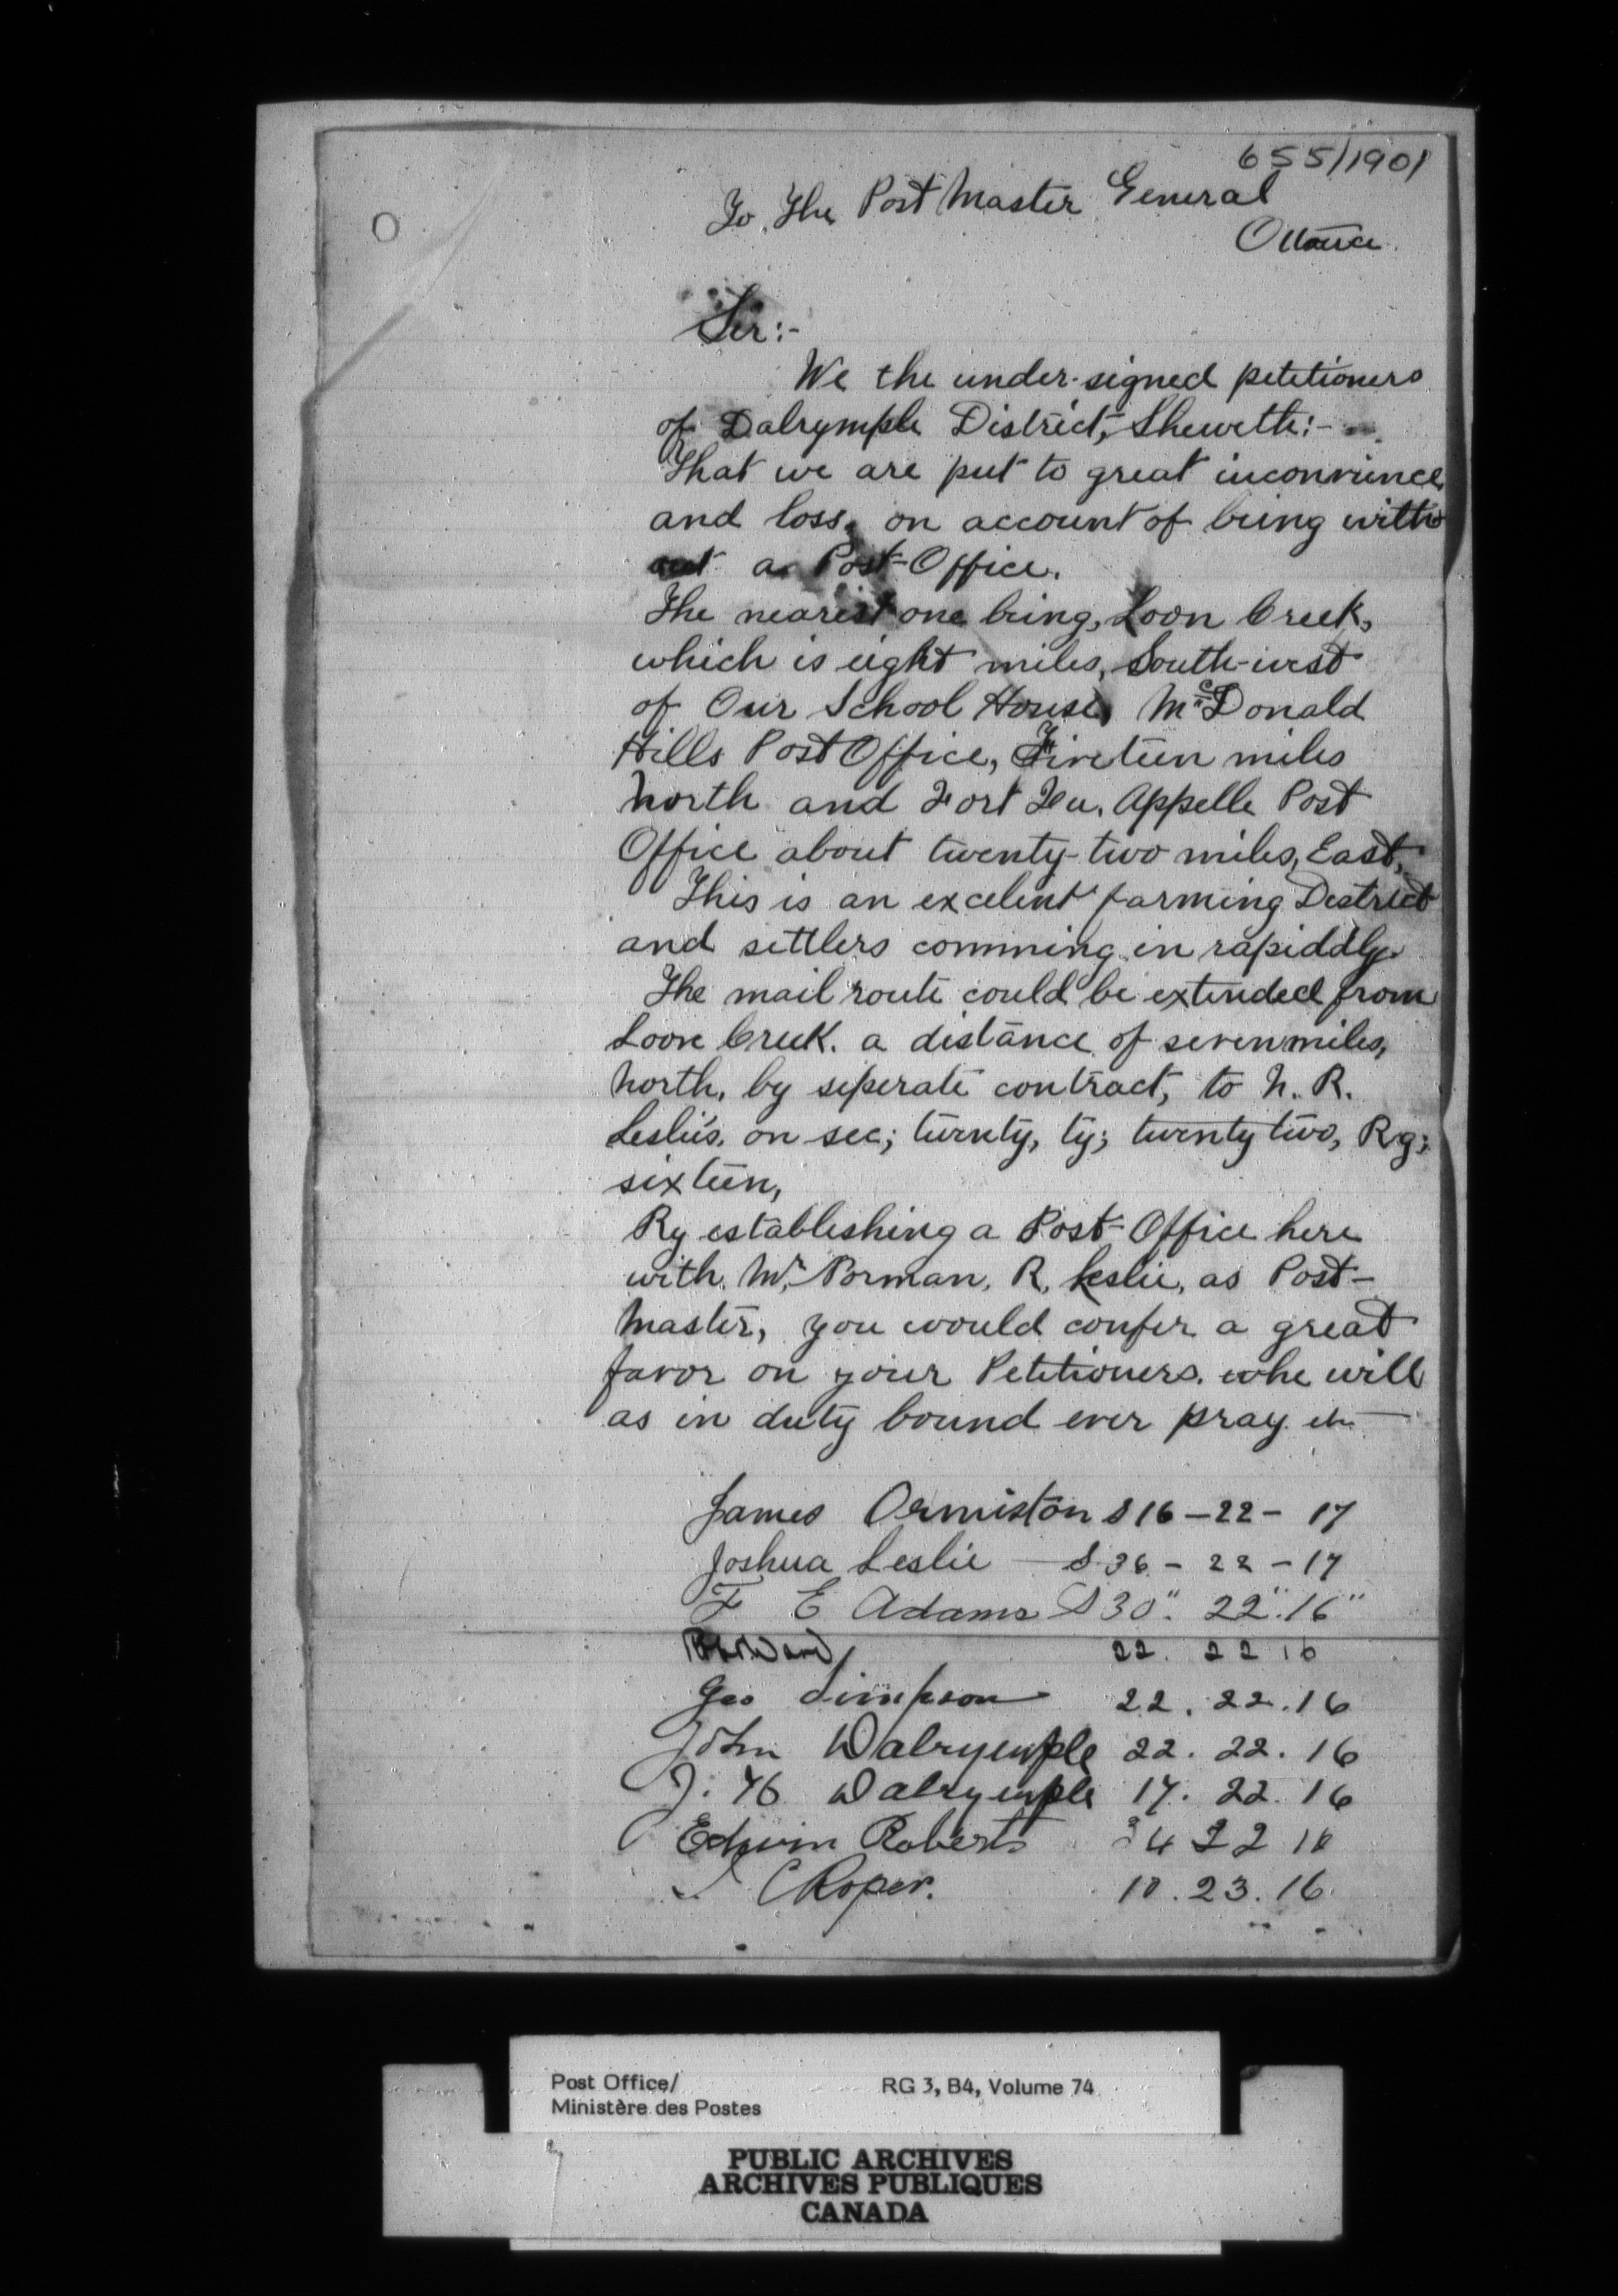 655/1901
To The Post Master General
Ottawa.
Sir:-
We the under-signed petitioners
of Dalrymple District, Sheweth:-
That we are put to great inconvience
and loss, on account of being with
out a Post-Office.
The nearest one being, Loon Creek,
which is eight miles, South-west
of Our School House, McDonald
Hills Post Office, miles
North and Fort Qu. Appelle Post
Office about twenty-two miles, East,
This is an excelent farming District
and settlers comming in rapiddly.
The mail route could be extended from
Loon Creek. a distance of seven miles,
North, by seperate contract, to N. R.
Leslie's. on sec; twenty, tp; twenty two, Rg;
sixteen,
By establishing a Post-Office here
with Mr. Norman. R. Leslie, as Post-
Master, you would confer a great
favor on your Petitioners. who will
as in duty bound ever pray. etc
James Ormiston S 16 - 22 - 17
Joshua Leslie - S. 36 - 22 - 17
F E Adams S 30". 22".16"
22. 22 16
Geo Simpson 22. 22. 16
John Dalryemple 22. 22. 16
J. H Dalryemple 17. 22. 16
Edwin Roberts 34 22 16
C Roper. 10. 23. 16.
Post Office/
Ministère des Postes
RG 3, B4, Volume 74
PUBLIC ARCHIVES
ARCHIVES PUBLIQUES
CANADA